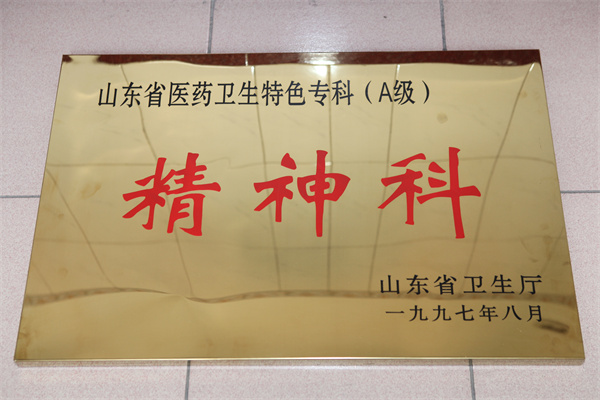 山东省医药卫生特色专科（A级）
精神科
山东省卫生厅
一九九七年八月